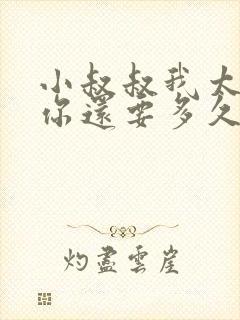 小叔叔我大
你還要多久
灼盡雲崖